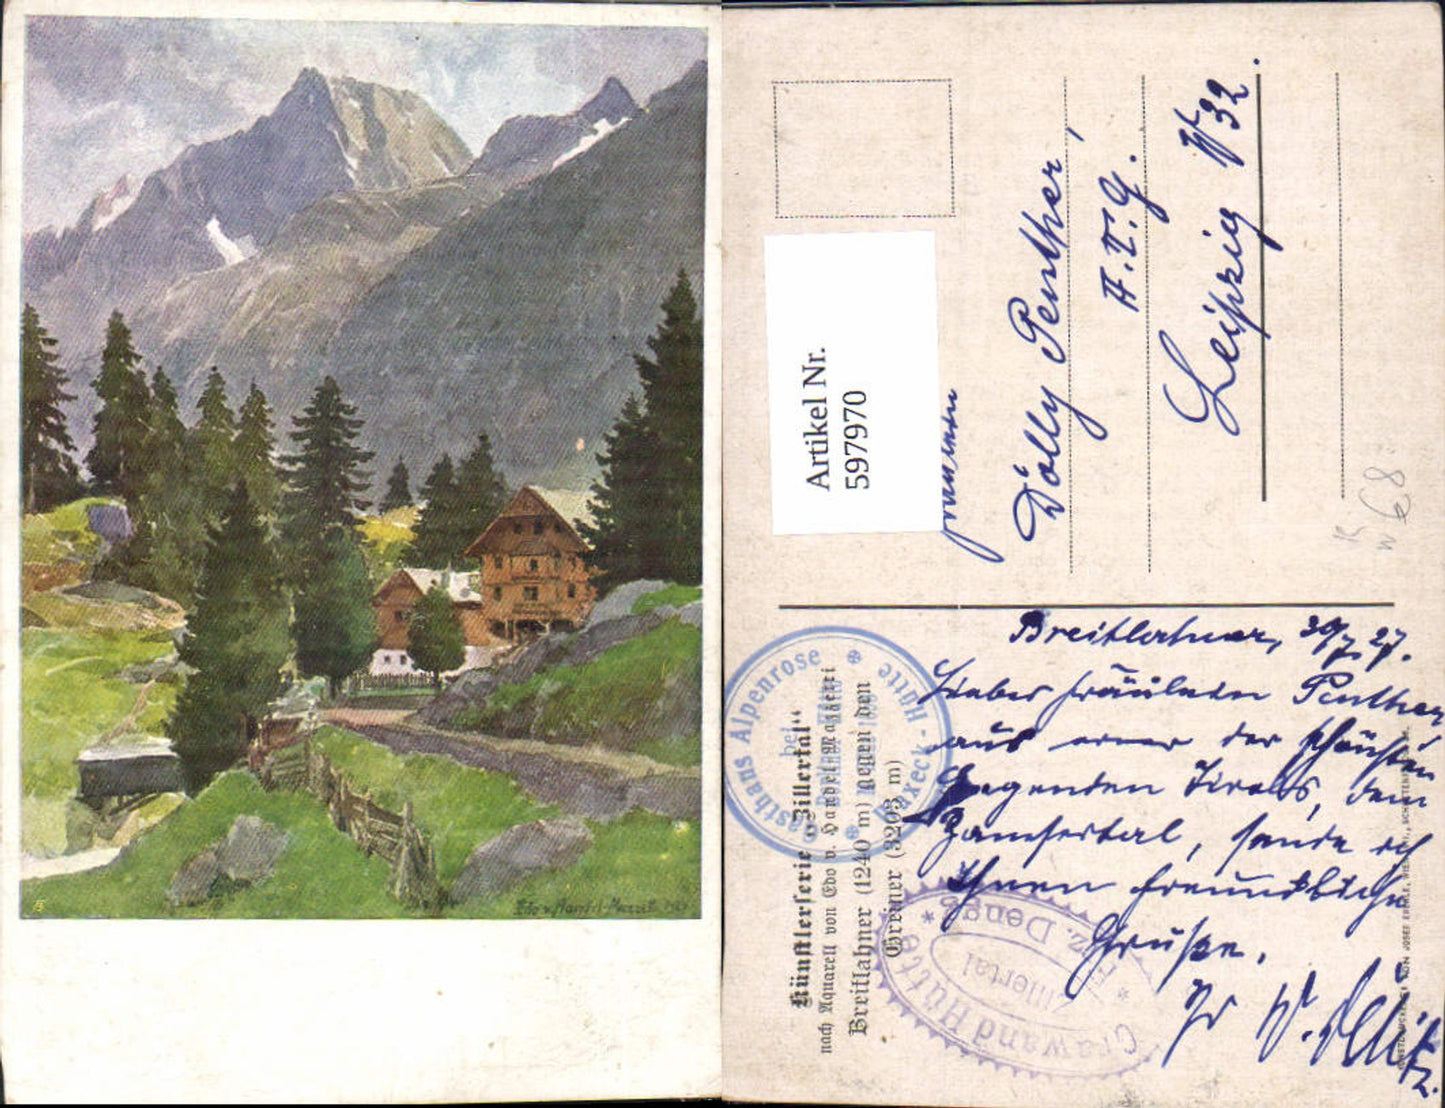 Edo v. Handel-Mazzetti
Artikel Nr.
597970
Fräulein
Dolly Penther,
A.T.G.
Leipzig W 32.
€ 8
Breitlahner, 30/7. 27.
Liebes Fräulein Penther,
aus einer der schönsten
Gegenden Tirols, dem
Zamsertal, sende ich
Ihnen freundliche
Grüße.
Ihr W.
Künstlerserie „Zillertal“
nach Aquarell von Edo v. Handel-Mazzetti
Breitlahner (1240 m) gegen den
Greiner (3203 m)
Gasthaus Alpenrose
bei
Furxeck-Hütte
Grawand Hütte
Zillertal
Bz. Dengg
VON JOSEF EBERLE, WIEN